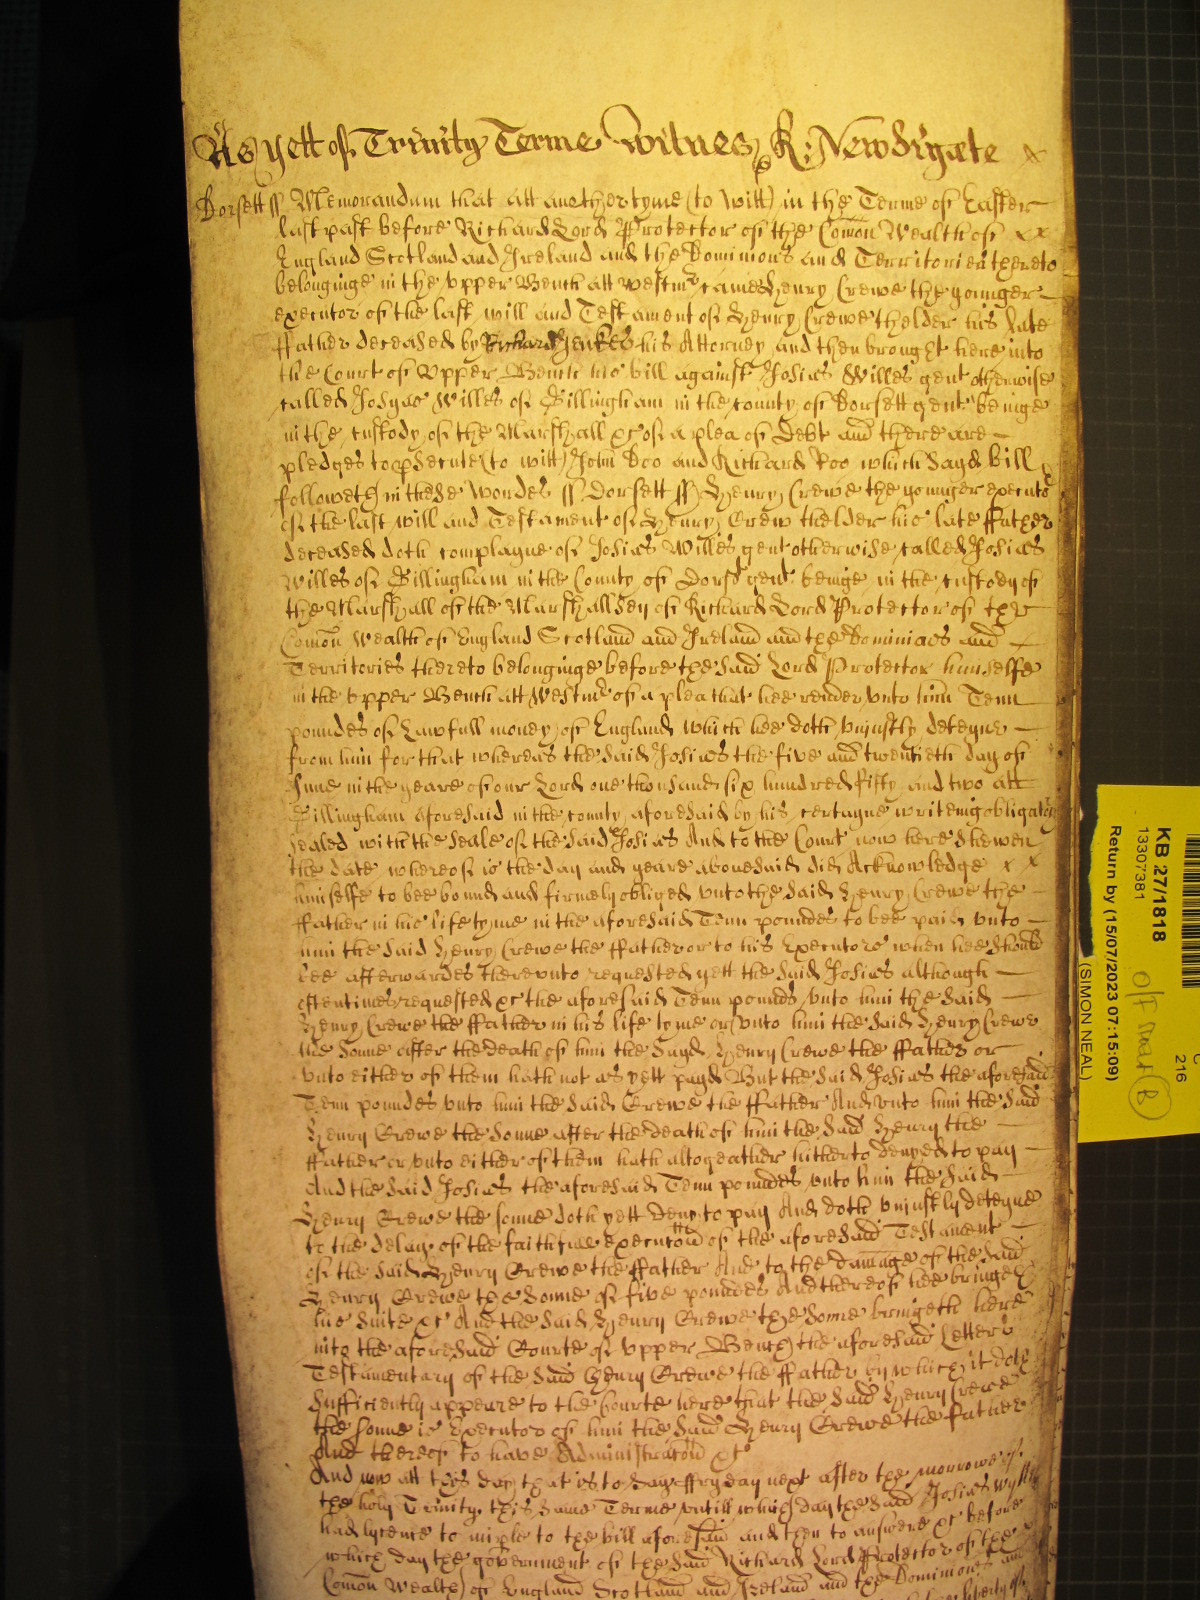 As yett of Trinity Terme Witnes R: Newdigate
Dorsett ss Memorandum that att another tyme (to witt) in the Terme of Easter
last past before Richard Lord Protector of the Comon Wealth of x x
England Scotland and Ireland and the Dominions and Territories thereto
belonginge in the upper Bench att Westmr came Henry Crewe the younger
executor of the last will and Testament of Henry Crewe thelder his late
ffather deceased by Richard Jenkes his Attorney and then brought here into
the Court of Upper Bench his bill against Josias Willes gent otherwise
called Josyas Willes of Gillingham in the county of Dorsett gent beinge
in the custody of the Marshall xc of a plea of Debt and there are
pledges to psecute (to witt) John Doo and Richard Roo which sayd bill
followeth in these wordes ss Dorsett ss Henry Crewe the younger executor
of the last will and Testament of Henry Crew thelder his late ffather
deceased doth complayne of Josias Willes gent otherwise called Josias
Willes of Gillingham in the County of Dorst gent beinge in the custody of
the Marshall of the Marshallsey of Richard Lord Protector of the
Comon Wealth of England Scotland and Ireland and the Dominions and
Territories thereto belonginge before the said Lord Protector himselffe
in the upper Bench att Westmr of a plea that hee render unto him Tenn
poundes of Lawfull money of England which hee doth unjustly deteyne
from him for that whereas the said Josias the five and twentieth day of
June in the yeare of our Lord one thousand six hundred fifty and two att
Gillingham aforesaid in the county aforesaid by his certayne writeing obligatory
sealed with the seale of the said Josias And to the Court now here shewen
the date whereof is the day and yeare abovesaid did Acknowledge x x
himselfe to bee bound and firmely obliged unto the said Henry Crewe the
ffather in his life tyme in the aforesaid Tenn poundes to bee paid unto
him the said Henry Crewe the ffather or to his Executors when hee should
bee afterwardes thereunto requested yett the said Josias although
oftentimes requested xc the aforesaid Tenn pounds unto him the said
Henry Crewe the ffather in his life tyme or unto him the said Henry Crewe
the sonne after the death of him the sayd Henry Crewe the ffather or
unto either of them hath not as yett payd But the said Josias the aforesaid
Tenn poundes unto him the said Crewe the ffather And unto him the said
Henry Crewe the sonne after the death of him the said Henry the
ffather or unto either of them hath altogeather hitherto denyed to pay
And the said Josias the aforesaid Tenn poundes unto him the said
Henry Crewe the sonne doth yett deny to pay And doth unjustly deteyne
to the delay of the faithfull execution of the aforesaid Testament
of the said Henry Crewe the ffather And to the damage of the said
Henry Crewe the sonne of five poundes And thereof hee bringeth
his suite xc And the said Henry Crewe the sonne bringeth here
into the aforesaid Courte of upper Bench the aforesaid Letters
Testamentary of the said Henry Crewe the ffather by which it doth
sufficiently appeare to the Courte here that the said Henry Crewe
the sonne is Executor of him the said Henry Crewe the father
And thereof to have Administracon xc
And now att this day that is to say ffryday next after the morrowe of
the holy Trinity this same Terme untill which day the said Josias Wylles
had lycence to imple to the bill aforesaid and then to answere xc before
which day the government of the said Richard Lord Protector of the
Comon Wealth of England Scotland and Ireland and the Dominions and
KB 27/1818
13307381
Return by (15/07/2023 07:15:09)
(SIMON NEAL)
216